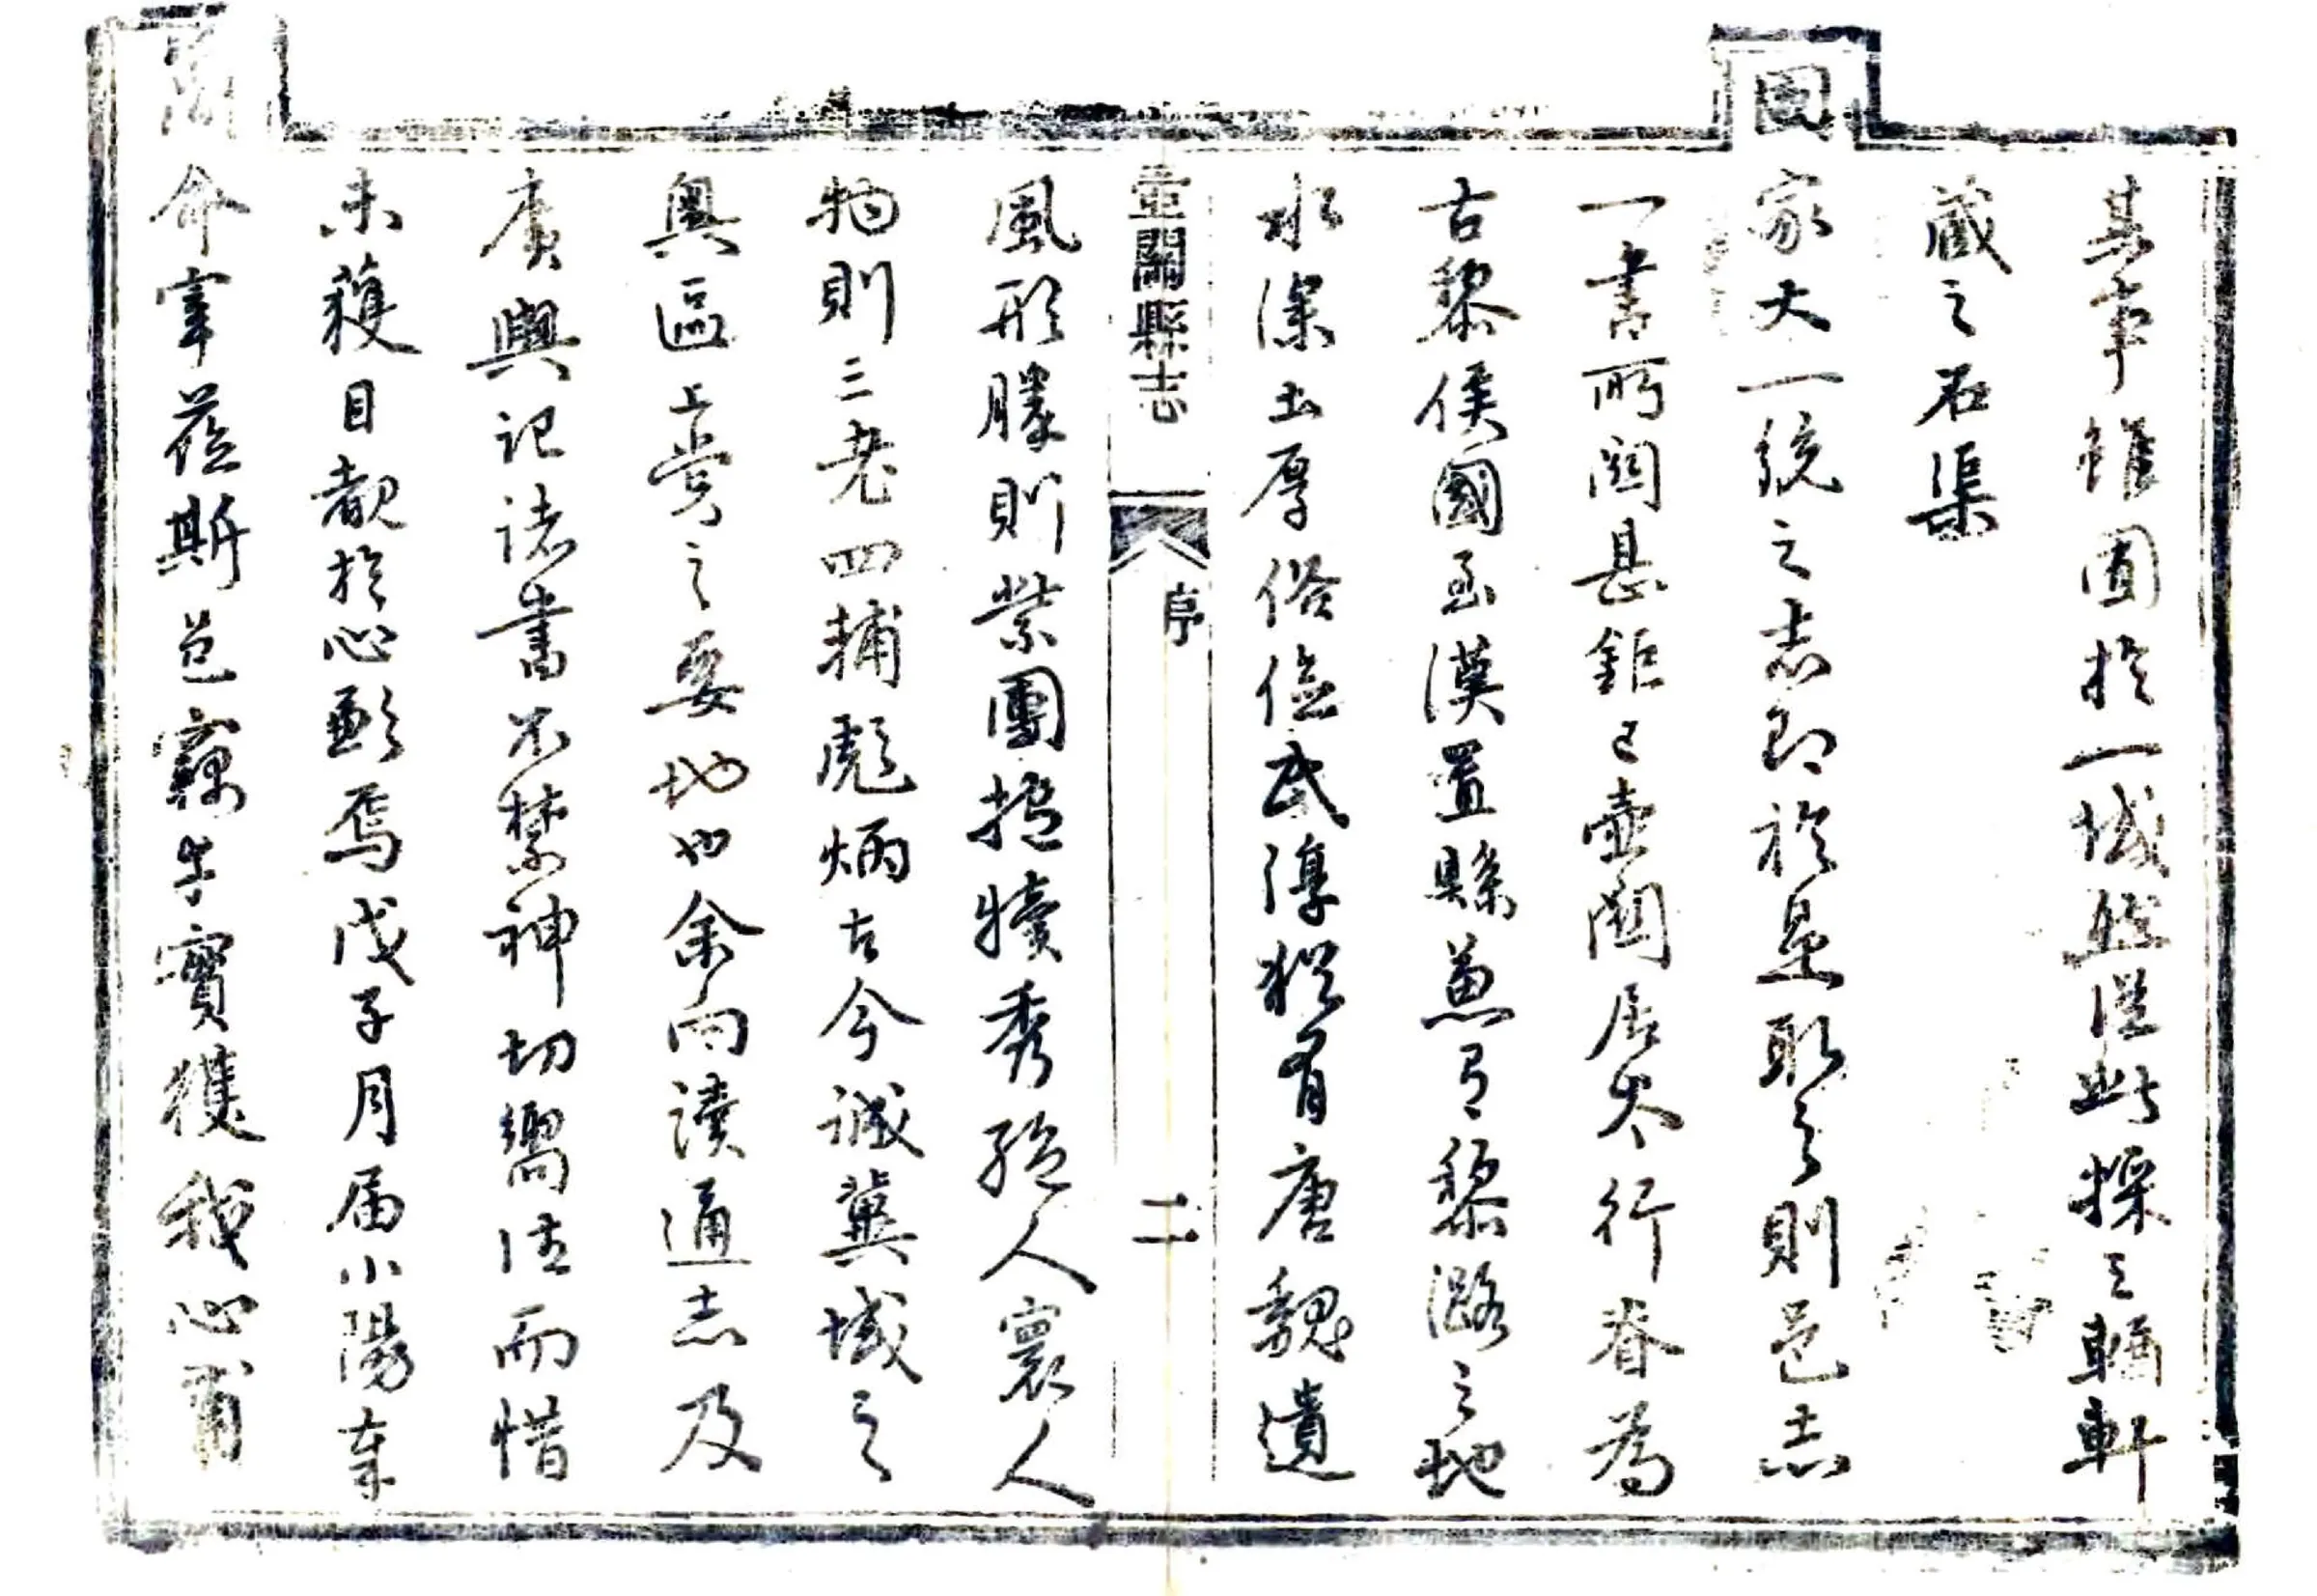 其事雖囿於一域然從此採之輶軒
藏之石渠
國家大一統之志即於是取之則邑志
一書所關甚鉅已壺關居太行脊為
古黎侯國至漢置縣兼有黎潞之地
水深土厚俗儉民淳猶有唐魏遺
壺關縣志
序
二
風形勝則紫團抱犢秀絕人寰人
物則三老四輔彪炳古今誠冀域之
奧區上黨之要地也余向讀通志及
廣輿記諸書不禁神切嚮往而惜
未獲目覩於心歉焉戊子月屆小陽奉
簡命宰蒞斯邑竊幸實獲我心甫